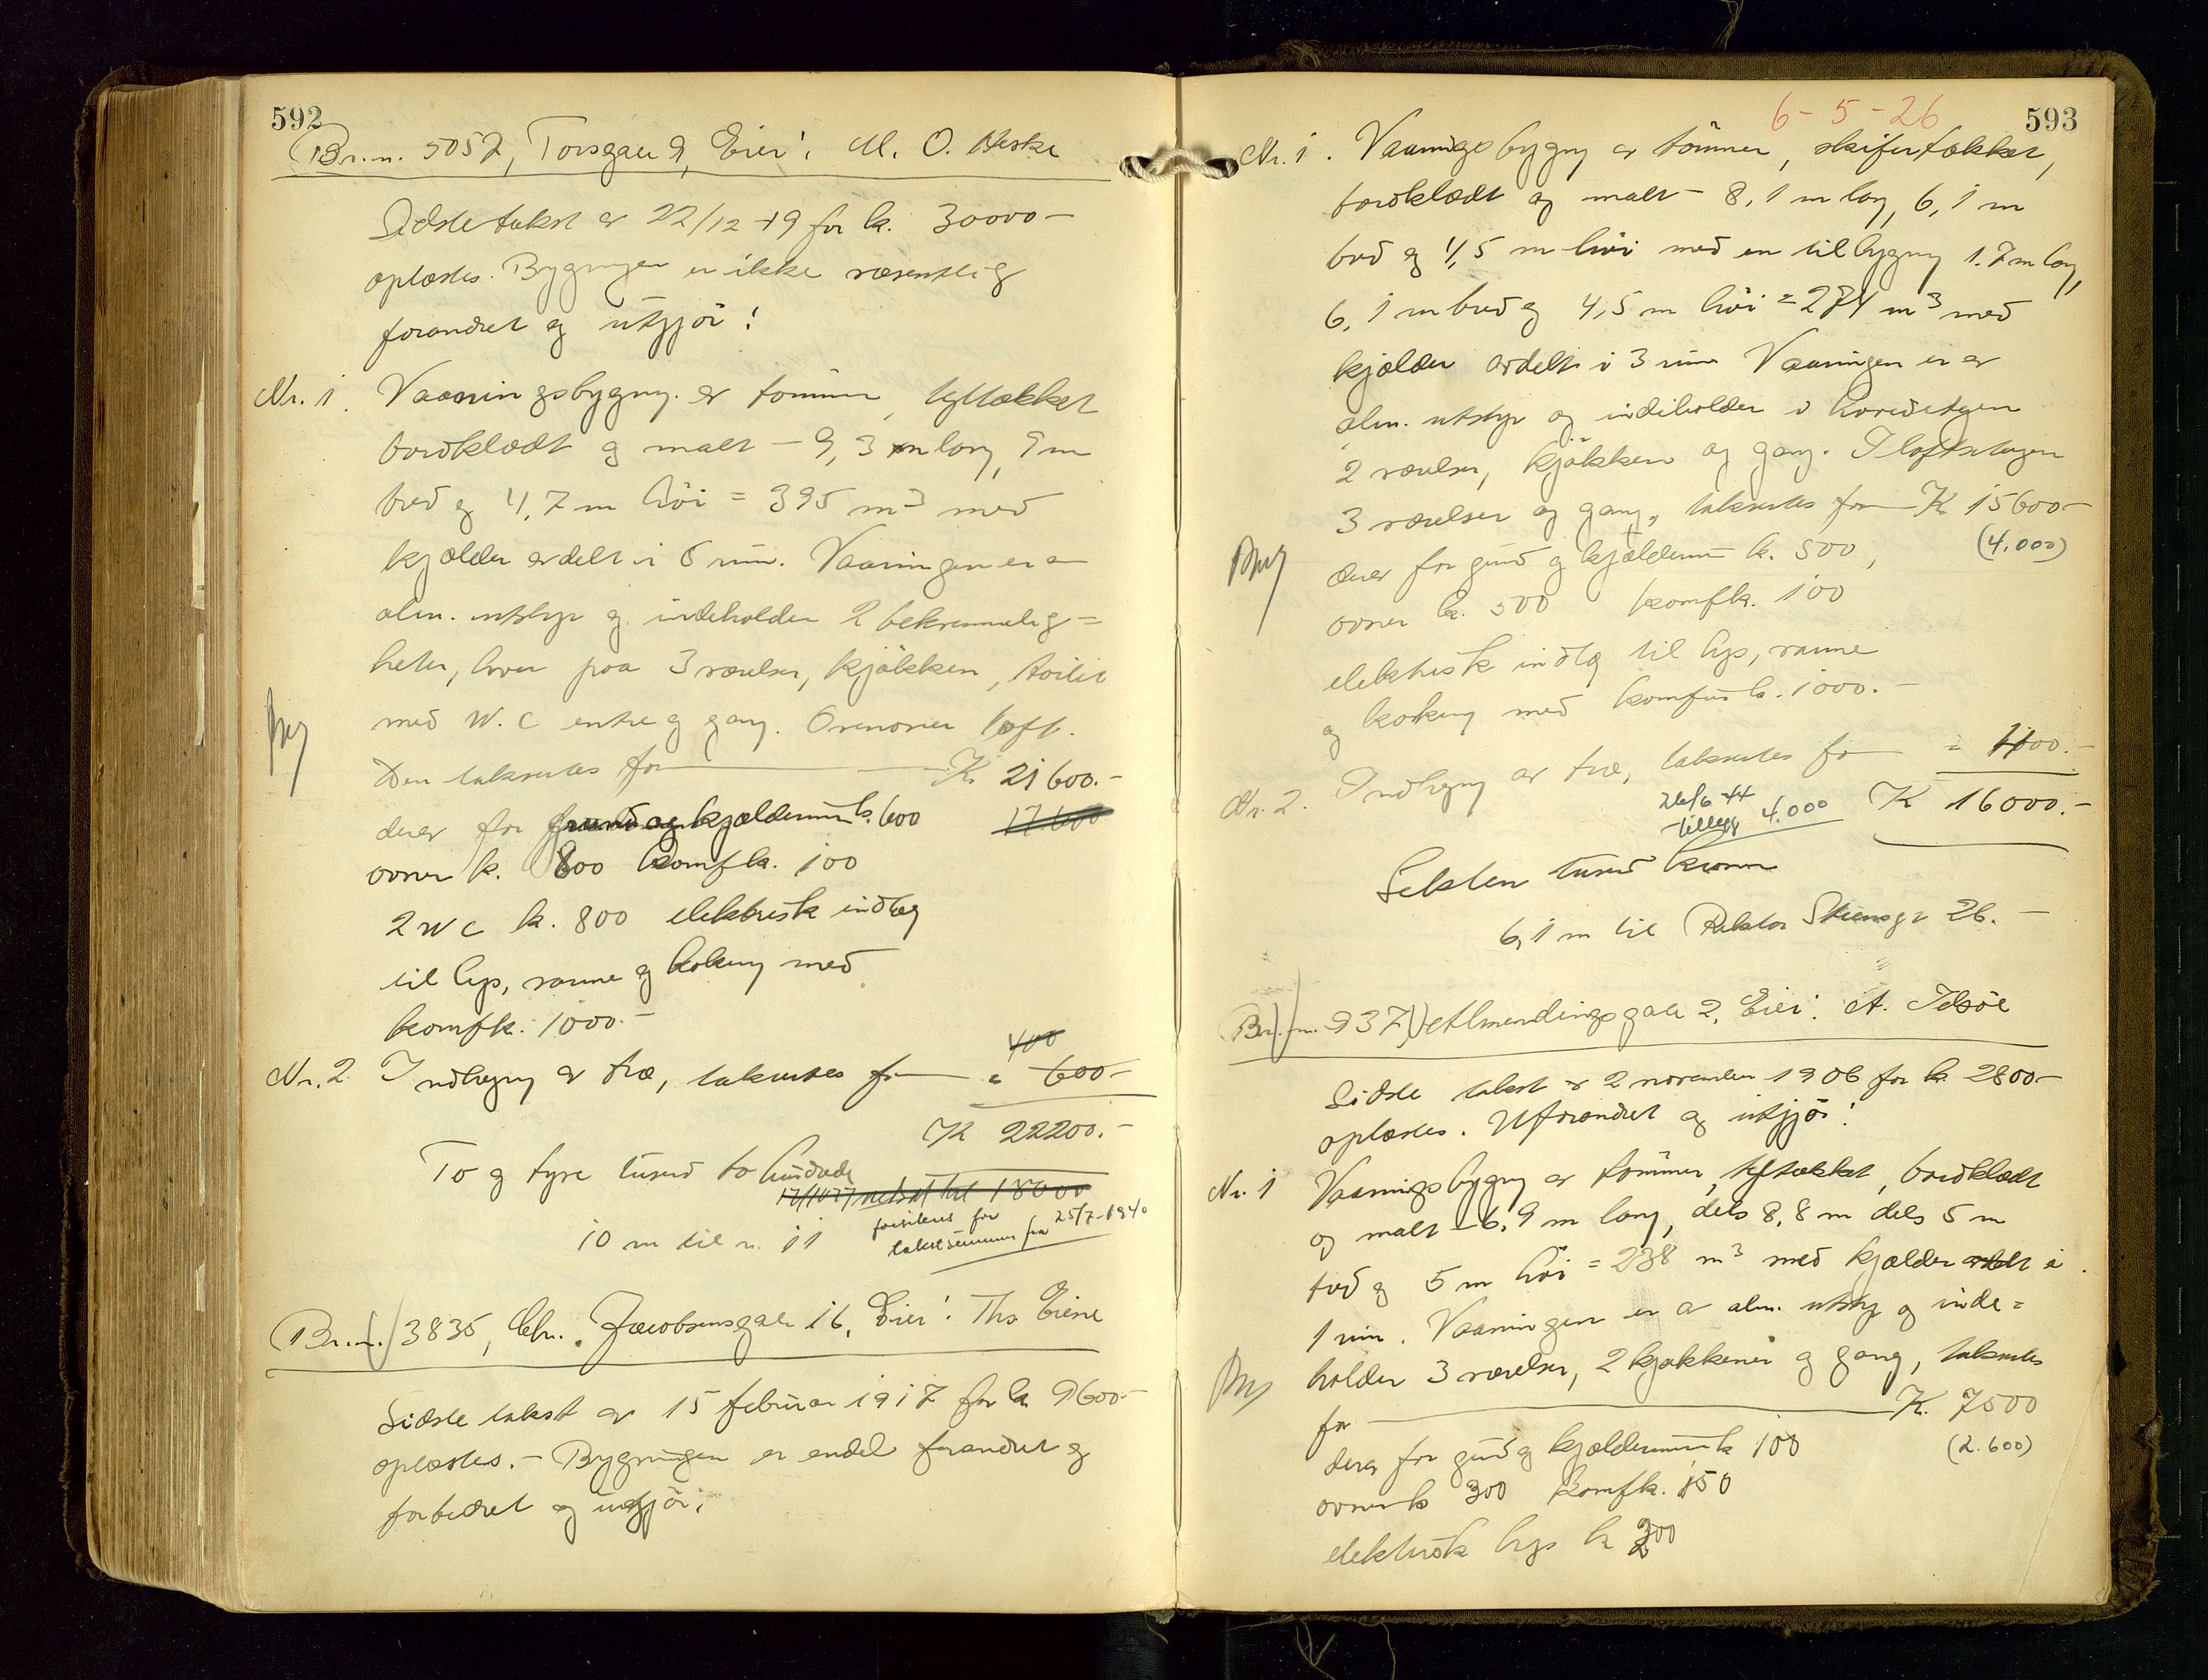 592
Br.n. 5052, Torsgate 9, Eier: M. O. Aeske
Sidste takst av 22/12 19 for k. 30000-
oplæstes. Bygningen er ikke væsentlig
forandret og utgjør:
Nr. 1. Vaaningsbygng. av tømmer, tegltækket
bordklædt og malt - 9,3 m lang, 9 m
bred og 4,7 m høi = 395 m3 med
kjælder avdelt i 6 rum. Vaaningen er av
alm. utstyr og indeholder 2 bekvemmelig=
heter, hver paa 3 værelser, kjøkken, toilet
med W.C entre og gang. Ovenover loft.
Den taksertes for K. 21600.-
derav for grund og kjælderrum k. 600 17.600
ovner k. 800 komf k. 100
2 WC k. 800 elektrisk indlæg
til lys, varme og kokning med
komf k. 1000.-
400
Nr. 2. Indhegng av træ, taksertes for " 600-
K 22200.-
To og tyve tusend to hundrede
17/10 27 nedsat til 18000
10 m til n. 11
takstsummen fra 25/7-1940
Br.n. 3835, Chr. Jacobsensgate 16, Eier: Ths Eiene
Sidste takst av 15 februar 1917 for k 9600-
oplæstes. - Bygningen er endel forandret og
forbedret og utgjør:
6-5-26
593
Nr. 1. Vaaningsbygng av tømmer, skifertækket,
bordklædt og malt - 8,1 m lang, 6,1 m
bred og 4,5 m høi med en tilbygng 1.7 m lang,
6,1 m bred og 4,5 m høi = 274 m3 med
kjælder avdelt i 3 rum Vaaningen er av
alm. utstyr og indeholder i hovedetagen
2 værelser, kjøkken og gang. I loftsetagen
3 værelser og gang, taksertes for K 15600-
(4.000)
derav for grund og kjælderrum k. 500,
ovner k. 500 komf k. 100
elektrisk indlæg til lys, varme
og kokning med komfur k. 1000.-
Nr. 2. Indhegng av træ, taksertes for " 400.-
26/6 44 tillegg 4.000 K 16000.-
Seksten tusend kroner
6,1 m til Rektor Steensgt 26.-
Br.n. 937, Almendingsgate 2, Eier: A. Idsöe
Sidste takst av 2 november 1906 for k. 2800-
oplæstes. Uforandret og utgjør:
Nr. 1 Vaaningsbygng av tømmer, tegltækket, bordklædt
og malt - 6,9 m lang, dels 8,8 m dels 5 m
bred og 5 m høi = 238 m3 med kjælder avdelt i
1 rum. Vaaningen er av alm. utstyr og inde=
holder 3 værelser, 2 kjøkkener og gang, taksertes
for K. 7500
(2.600)
derav for grund og kjælderrum k 100
ovner k 300 komf k. 150
elektrisk lys k 200